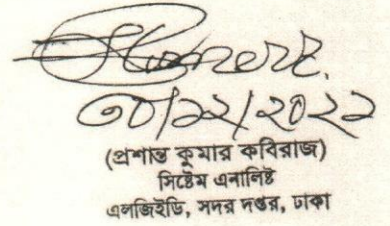 ৩০/১১/২০২২
(প্রশান্ত কুমার কবিরাজ)
সিষ্টেম এনালিষ্ট
এলজিইডি, সদর দপ্তর, ঢাকা